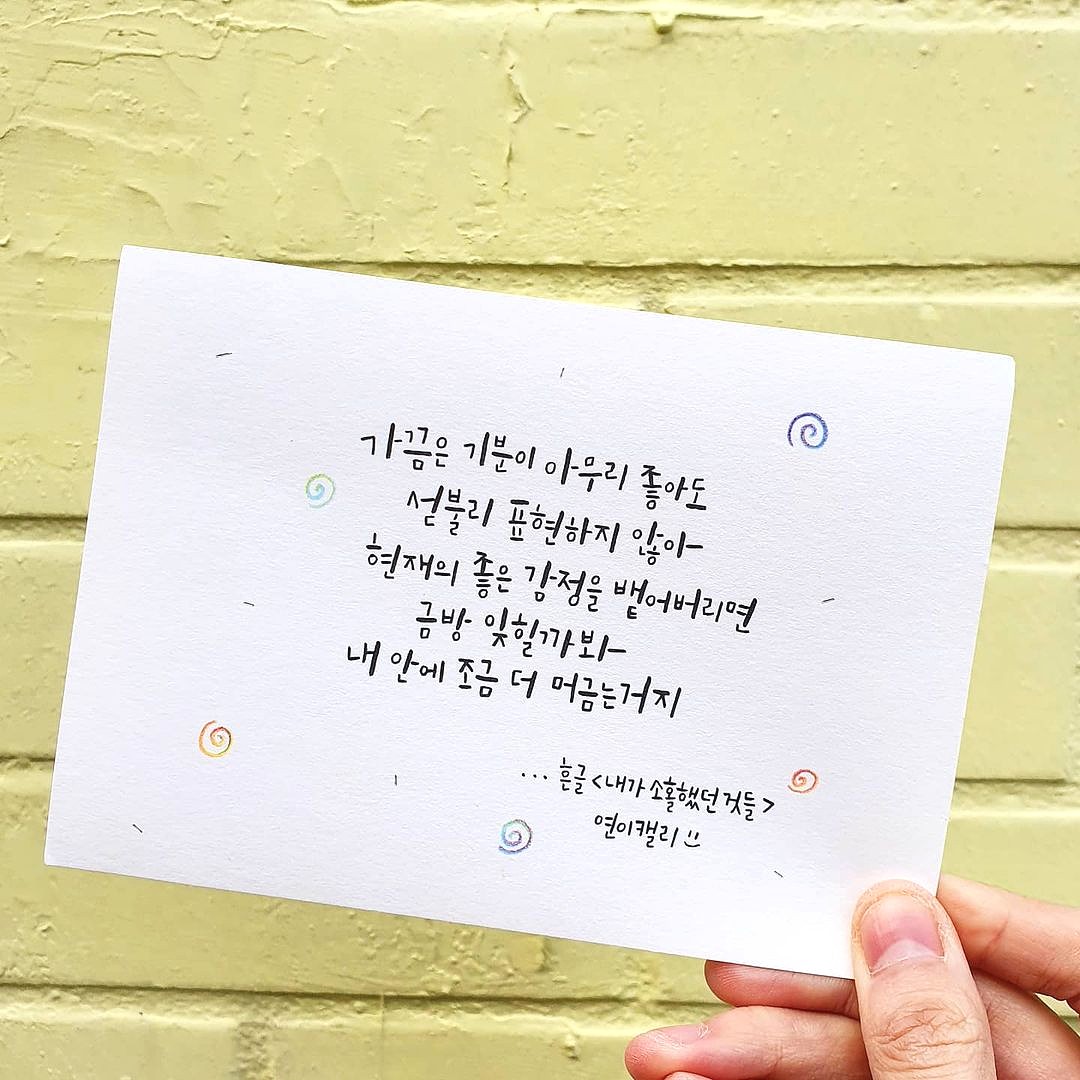 가끔은 기분이 아무리 좋아도
섣불리 표현하지 않아
현재의 좋은 감정을 뱉어버리면
금방 잊힐까봐
내 안에 조금 더 머금는거지
... 흔글 <내가 소홀했던 것들>
연이캘리